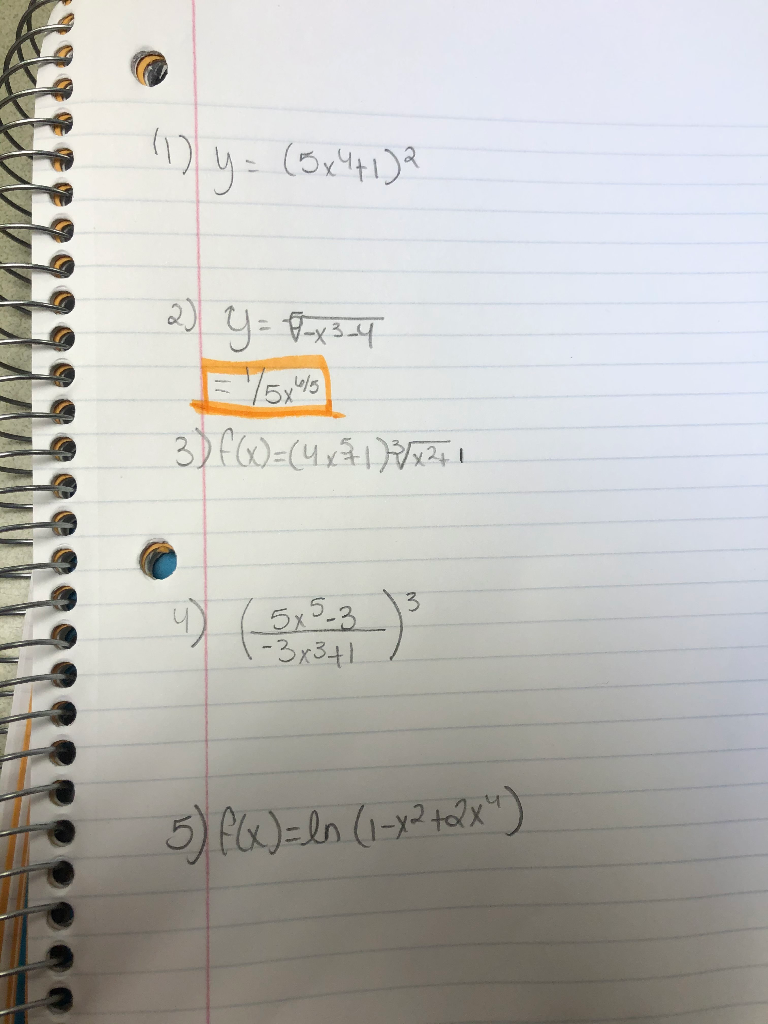 (1) y = (5x⁴+1)²
2) y = ⁵√-x³-4
= 1/5x⁴/⁵
3) f(x)=(4x⁵+1)³√x²+1
4) (5x⁵-3/-3x³+1)³
5) f(x)=ln(1-x²+2x⁴)